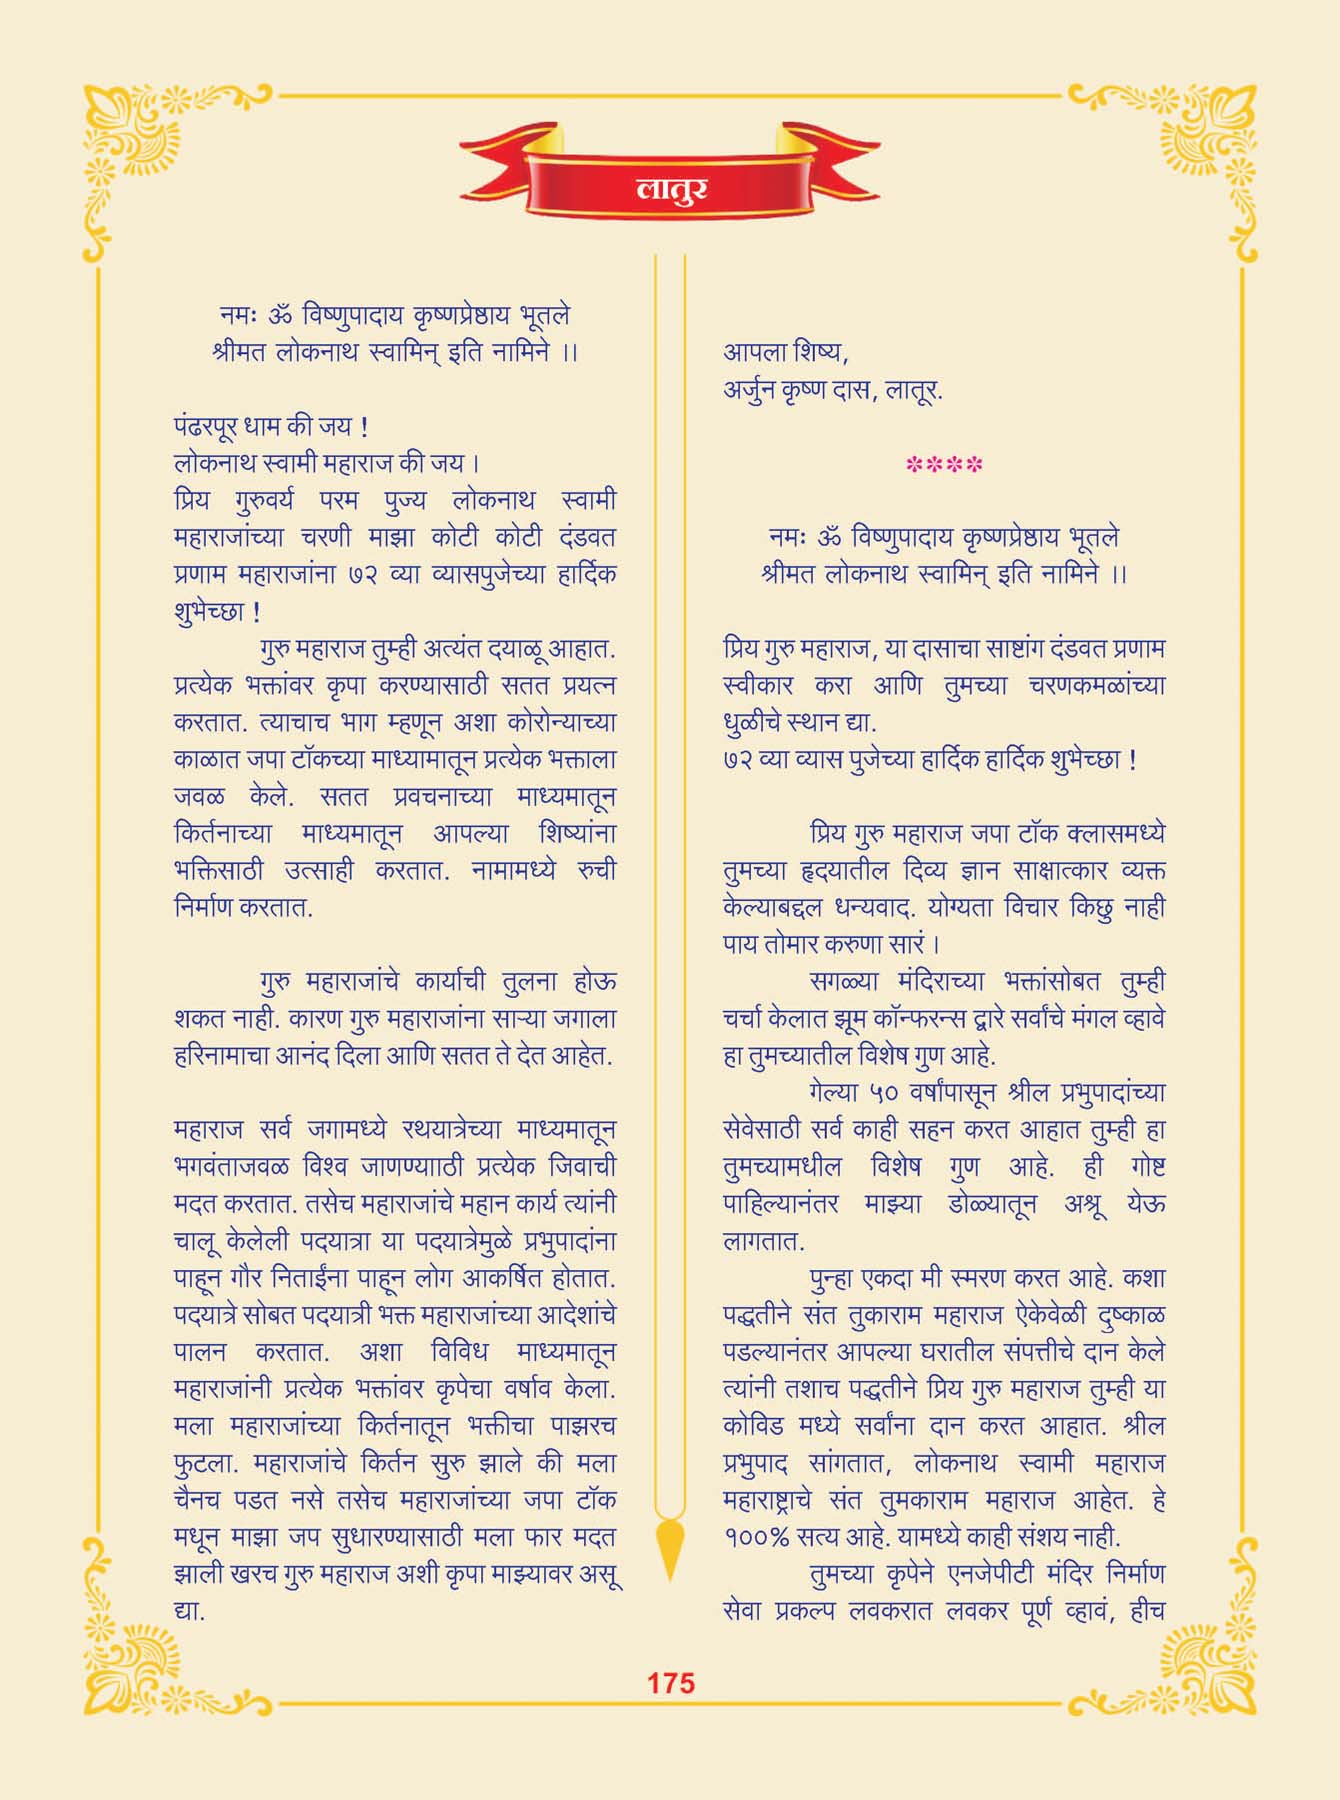 लातुर
नमः ॐ विष्णुपादाय कृष्णप्रेष्ठाय भूतले
श्रीमत लोकनाथ स्वामिन् इति नामिने ।।
पंढरपूर धाम की जय !
लोकनाथ स्वामी महाराज की जय ।
प्रिय गुरुवर्य परम पुज्य लोकनाथ स्वामी
महाराजांच्या चरणी माझा कोटी कोटी दंडवत
प्रणाम महाराजांना ७२ व्या व्यासपुजेच्या हार्दिक
शुभेच्छा !
गुरु महाराज तुम्ही अत्यंत दयाळू आहात.
प्रत्येक भक्तांवर कृपा करण्यासाठी सतत प्रयत्न
करतात. त्याचाच भाग म्हणून अशा कोरोन्याच्या
काळात जपा टॉकच्या माध्यामातून प्रत्येक भक्ताला
जवळ केले. सतत प्रवचनाच्या माध्यमातून
किर्तनाच्या माध्यमातून आपल्या शिष्यांना
भक्तिसाठी उत्साही करतात. नामामध्ये रुची
निर्माण करतात.
गुरु महाराजांचे कार्याची तुलना होऊ
शकत नाही. कारण गुरु महाराजांना साऱ्या जगाला
हरिनामाचा आनंद दिला आणि सतत ते देत आहेत.
महाराज सर्व जगामध्ये रथयात्रेच्या माध्यमातून
भगवंताजवळ विश्व जाणण्यााठी प्रत्येक जिवाची
मदत करतात. तसेच महाराजांचे महान कार्य त्यांनी
चालू केलेली पदयात्रा या पदयात्रेमुळे प्रभुपादांना
पाहून गौर निताईंना पाहून लोग आकर्षित होतात.
पदयात्रे सोबत पदयात्री भक्त महाराजांच्या आदेशांचे
पालन करतात. अशा विविध माध्यमातून
महाराजांनी प्रत्येक भक्तांवर कृपेचा वर्षाव केला.
मला महाराजांच्या किर्तनातून भक्तीचा पाझरच
फुटला. महाराजांचे किर्तन सुरु झाले की मला
चैनच पडत नसे तसेच महाराजांच्या जपा टॉक
मधून माझा जप सुधारण्यासाठी मला फार मदत
झाली खरच गुरु महाराज अशी कृपा माझ्यावर असू
द्या.
आपला शिष्य,
अर्जुन कृष्ण दास, लातूर.
****
नमः ॐ विष्णुपादाय कृष्णप्रेष्ठाय भूतले
श्रीमत लोकनाथ स्वामिन् इति नामिने ।।
प्रिय गुरु महाराज, या दासाचा साष्टांग दंडवत प्रणाम
स्वीकार करा आणि तुमच्या चरणकमळांच्या
धुळीचे स्थान द्या.
७२ व्या व्यास पुजेच्या हार्दिक हार्दिक शुभेच्छा !
प्रिय गुरु महाराज जपा टॉक क्लासमध्ये
तुमच्या हृदयातील दिव्य ज्ञान साक्षात्कार व्यक्त
केल्याबद्दल धन्यवाद. योग्यता विचार किछु नाही
पाय तोमार करुणा सारं ।
सगळ्या मंदिराच्या भक्तांसोबत तुम्ही
चर्चा केलात झूम कॉन्फरन्स द्वारे सर्वांचे मंगल व्हावे
हा तुमच्यातील विशेष गुण आहे.
गेल्या ५० वर्षांपासून श्रील प्रभुपादांच्या
सेवेसाठी सर्व काही सहन करत आहात तुम्ही हा
तुमच्यामधील विशेष गुण आहे. ही गोष्ट
पाहिल्यानंतर माझ्या डोळ्यातून अश्रू येऊ
लागतात.
पुन्हा एकदा मी स्मरण करत आहे. कशा
पद्धतीने संत तुकाराम महाराज ऐकेवेळी दुष्काळ
पडल्यानंतर आपल्या घरातील संपत्तीचे दान केले
त्यांनी तशाच पद्धतीने प्रिय गुरु महाराज तुम्ही या
कोविड मध्ये सर्वांना दान करत आहात. श्रील
प्रभुपाद सांगतात, लोकनाथ स्वामी महाराज
महाराष्ट्राचे संत तुमकाराम महाराज आहेत. हे
१००% सत्य आहे. यामध्ये काही संशय नाही.
तुमच्या कृपेने एनजेपीटी मंदिर निर्माण
सेवा प्रकल्प लवकरात लवकर पूर्ण व्हावं, हीच
175